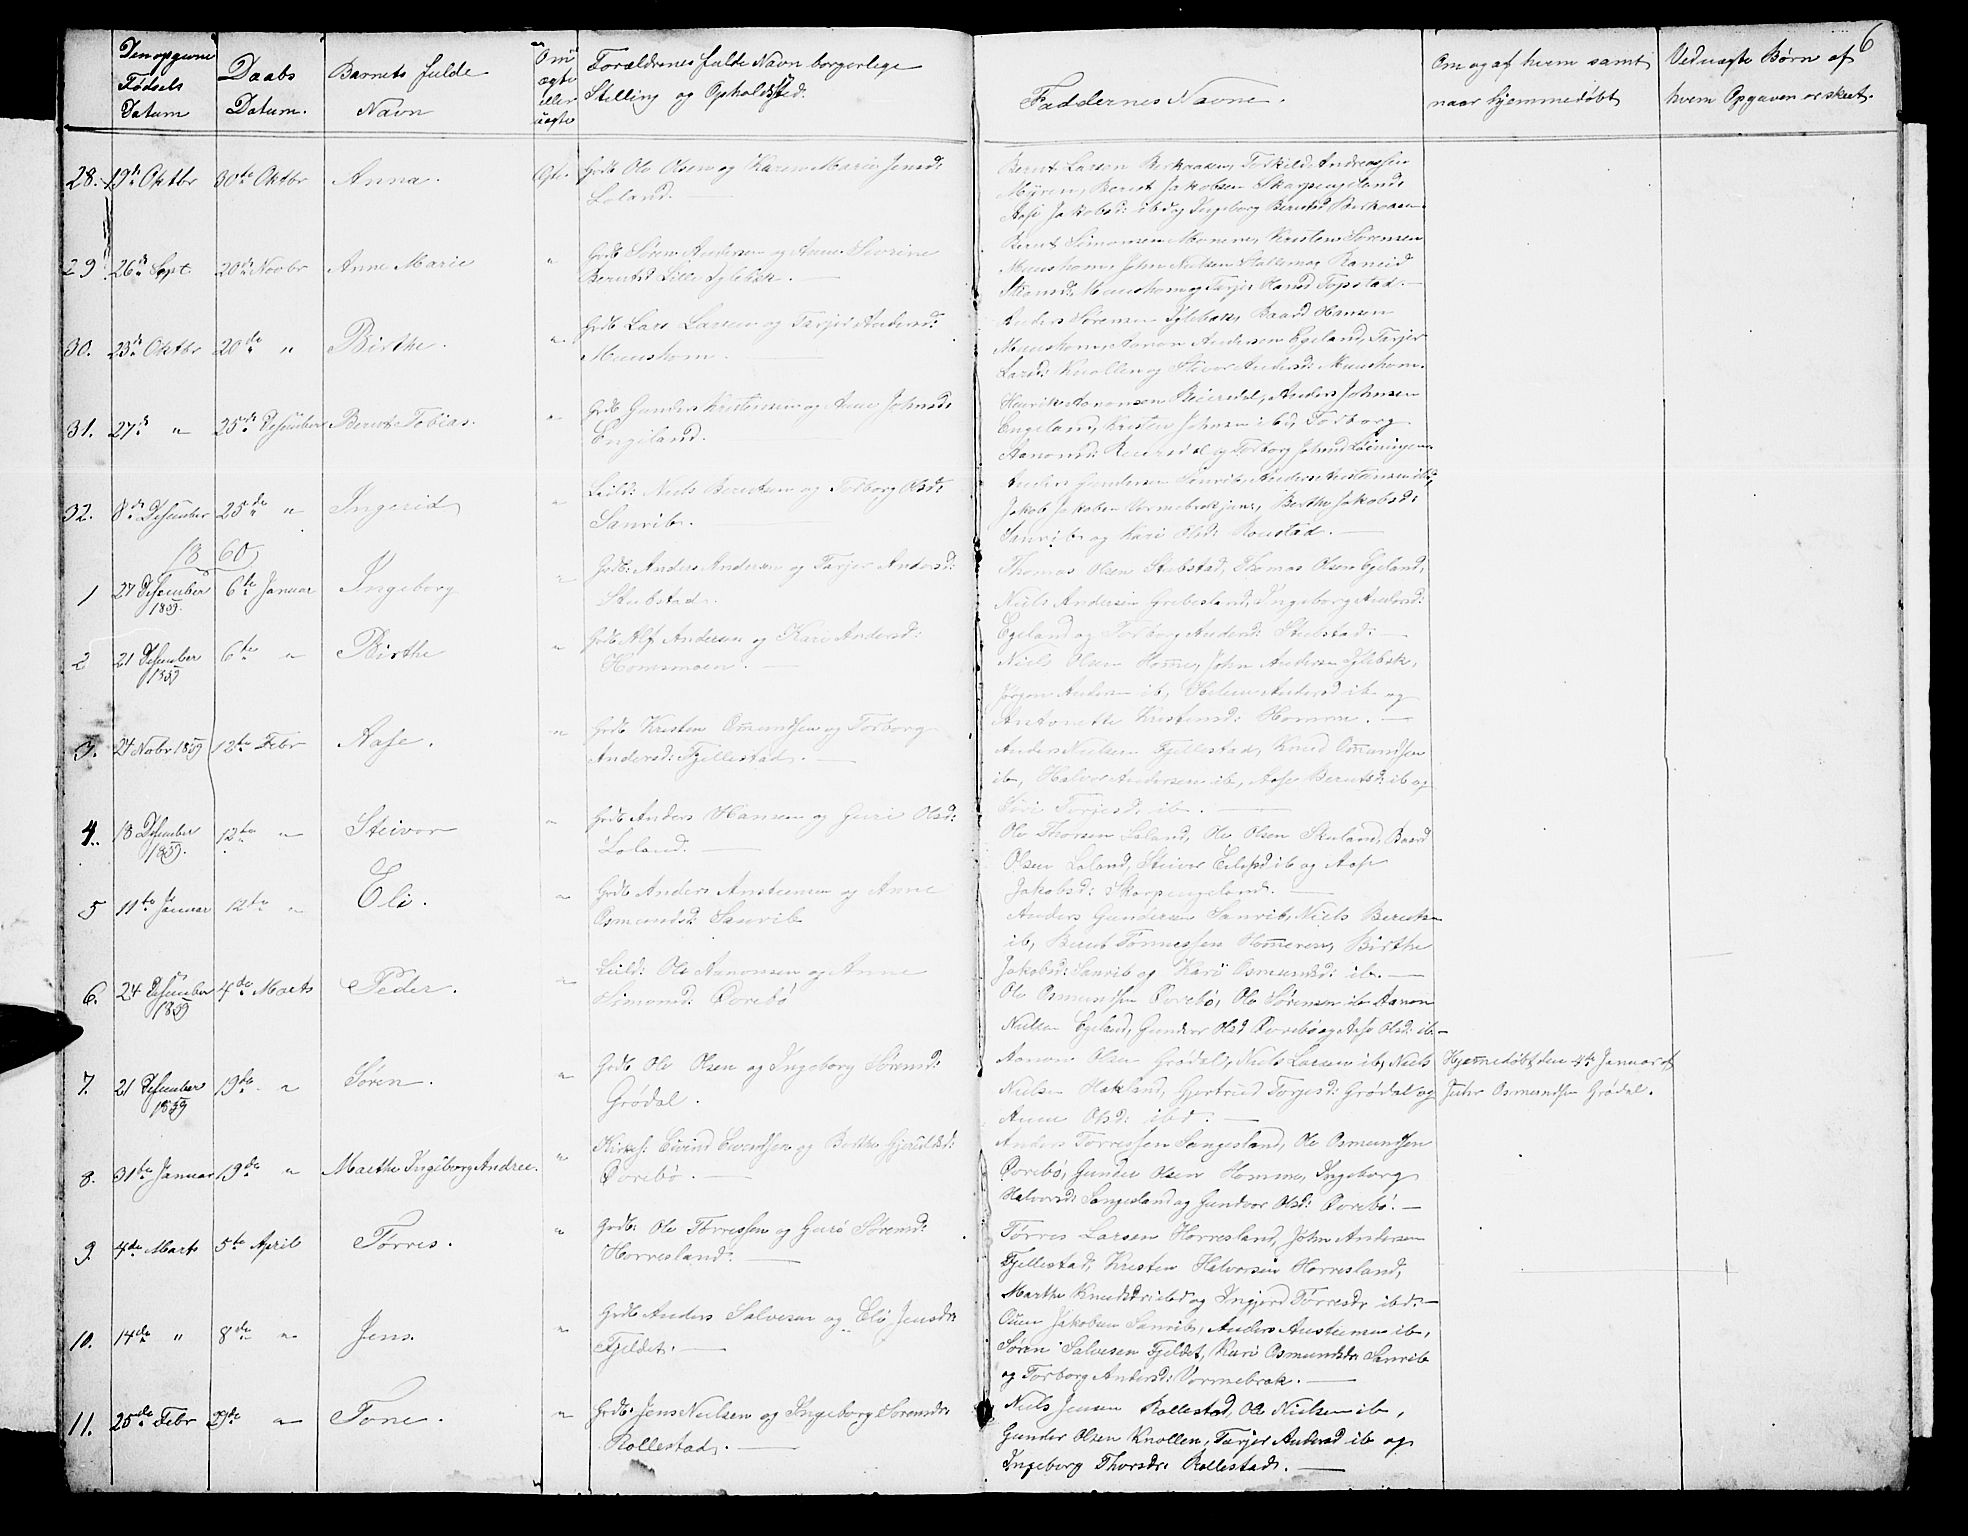 6
Den opgivne Fødsels Datum
Daabs Datum.
Barnets fulde Navn
Om ægte eller uægte
Forældrenes fulde Navn borgerlige Stilling og Opholdssted.
Faddernes Navne.
Om og af hvem samt naar hjemmedøbt
Ved uægte Børn af hvem Opgaven er skeet.
28. 19de Oktbr 30te Oktbr Anna. Gdb. Ole Olsen og Karen Marie Jensd:
Loland. —
Bernt Larsen Birkaasen, Torkild Andreassen
Myren, Bernt Jakobsen Skarpengeland,
Aase Jakobsd: ibd og Ingeborg Berntsd Birkaasen.
29 26de Sept 20de Novbr Anne Marie " Gdb. Søren Andersen og Anne Sivrine
Berntsd Lille Iglebæk. —
Bernt Simonsen Momme, Kristen Sørensen
Muushom, John Nielsen Stallemo,
Muushom og Tarjer Hansd Topstad. —
30. 23de Oktbr 20de " Birthe. " Gdb. Lars Larsen og Tarjer Andersd:
Muushom.
Anders Sørensen Iglebæk, Baard Hansen
Muushom, Aanon Andersen Egeland, Tarjer
Larsd: Knollen og Andersd: Muushom.
31. 27de " 25de Desember Bernt Tobias. " Gdb. Gunder Kristensen og Anne Johnsd:
Engeland.
Henrik Aanonsen Reiersdal, Anders Johnsen
Engeland, Kristen Johnsen ibd, Torborg
Aanonsd: Reiersdal og Torborg Johnsd
32. 8de Desember 25de " Ingerid " Leild: Niels Berntsen og Torborg Olsd:
Sanrib. —
Anders Gundersen Sanrib, Anders Austensen ibd,
Jakob Jakobsen Vormebrok jun, Birthe Jakobsd:
Sanrib og Kari Olsd: Roustad. —
1860
1 27 Desember 1859. 6te Januar Ingeborg " Gdb: Anders Andersen og Tarjer Andersd:
Stubstad.
Thomas Olsen Stubstad, Thomas Olsen Egeland,
Niels Andersen Grebesland, Ingeborg Andersd:
Egeland og Torborg Andersd: Stubstad: —
2 21 Desember 1859 6te " Birthe " Gdb. Alf Andersen og Kari Andersd:
Homsmoen. —
Niels Olsen Homme, John Andersen Iglebæk,
Jørgen Andersen ib, Helene Andersd ib og
Antonette Kristensd: Homme. —
3. 24 Novbr 1859 12te Febr Aase. " Gdb Kristen Omundsen og Torborg
Andersd: Fjellestad. —
Anders Nielsen Fjellestad, Knud Omundsen
ib, Halvor Andersen ib, Aase Berntsd: ib og
Siri Torjesd: ib. —
4. 18 Desember 1859. 12te " Steivor " Gdb Anders Hansen og Guri Olsd:
Loland. —
Ole Thorsen Loland, Ole Olsen Skuland, Baard
Olsen Loland, Steivor Eilifsd ib og Aase
Jakobsd: Skarpengeland. —
5 11te Januar 12te " Eli. " Gdb Anders Austensen og Anne
Osmundsd: Sanrib
Anders Gundersen Sanrib, Niels Berntsen
ib, Bernt Tønnessen Homeren, Birthe
Jakobsd: Sanrib og Kari Osmundsd: ib. —
6. 24 Desember 1859 4de Marts Peder. " Leild: Ole Aanonsen og Anne
Simonsd: Øvrebø
Ole Osmundsen Øvrebø, Ole Sørensen ib Aanon
Nielsen Egeland, Gundvor Olsd Øvrebø og Aase Olsd: ib —
7. 21 Desember 1859 19de " Søren. " Gdb Ole Olsen og Ingeborg Sørensd:
Grødal.
Aanon Olsen Grødal, Niels Larsen ib, Niels
Nielsen Hakland, Gjertrud Torjesd: Grødal og
Anne Olsd: ibd. —
Hjemmedøbt den 4de Januar af
Juhr Osmundsen Grødal.
8. 31te Januar 19de " Marthe Ingeborg Andree. " Kirkes: Eivind Evensen og Birthe
Øvrebø. —
Anders Tørressen Sangesland, Ole Osmundsen
Øvrebø, Gunder Olsen Homme, Ingeborg
Halvorsd: Sangesland og Gundvor Olsd: Øvrebø. —
9. 4de Marts 5te April Tørres. " Gdb: Ole Tørressen og Guro Sørensd:
Horresland. —
Tørres Larsen Horresland, John Andersen
Fjellestad, Kristen Halvorsen Horresland,
Marthe Knudsdr ibd og Ingjerd Tørresdr ibd. —
10. 14de " 8de " Jens. " Gdb Anders Salvesen og Eli Jensdr
Fjeldet. —
Ouen Jakobsen Sanrib, Anders Austensen ib,
Søren Salvesen Fjeldet, Kari Osmundsdr Sanrib
og Torborg Andersd: Vormebrok. —
11. 25de Febr 29de " Tone. " Gdb: Jens Nielsen og Ingeborg Sørensdr
Rollestad. —
Niels Jensen Rollestad, Ole Nielsen ib,
Gunder Olsen Knollen, Tarjer Andersd ib og
Ingeborg Thorsdr Rollestad. —